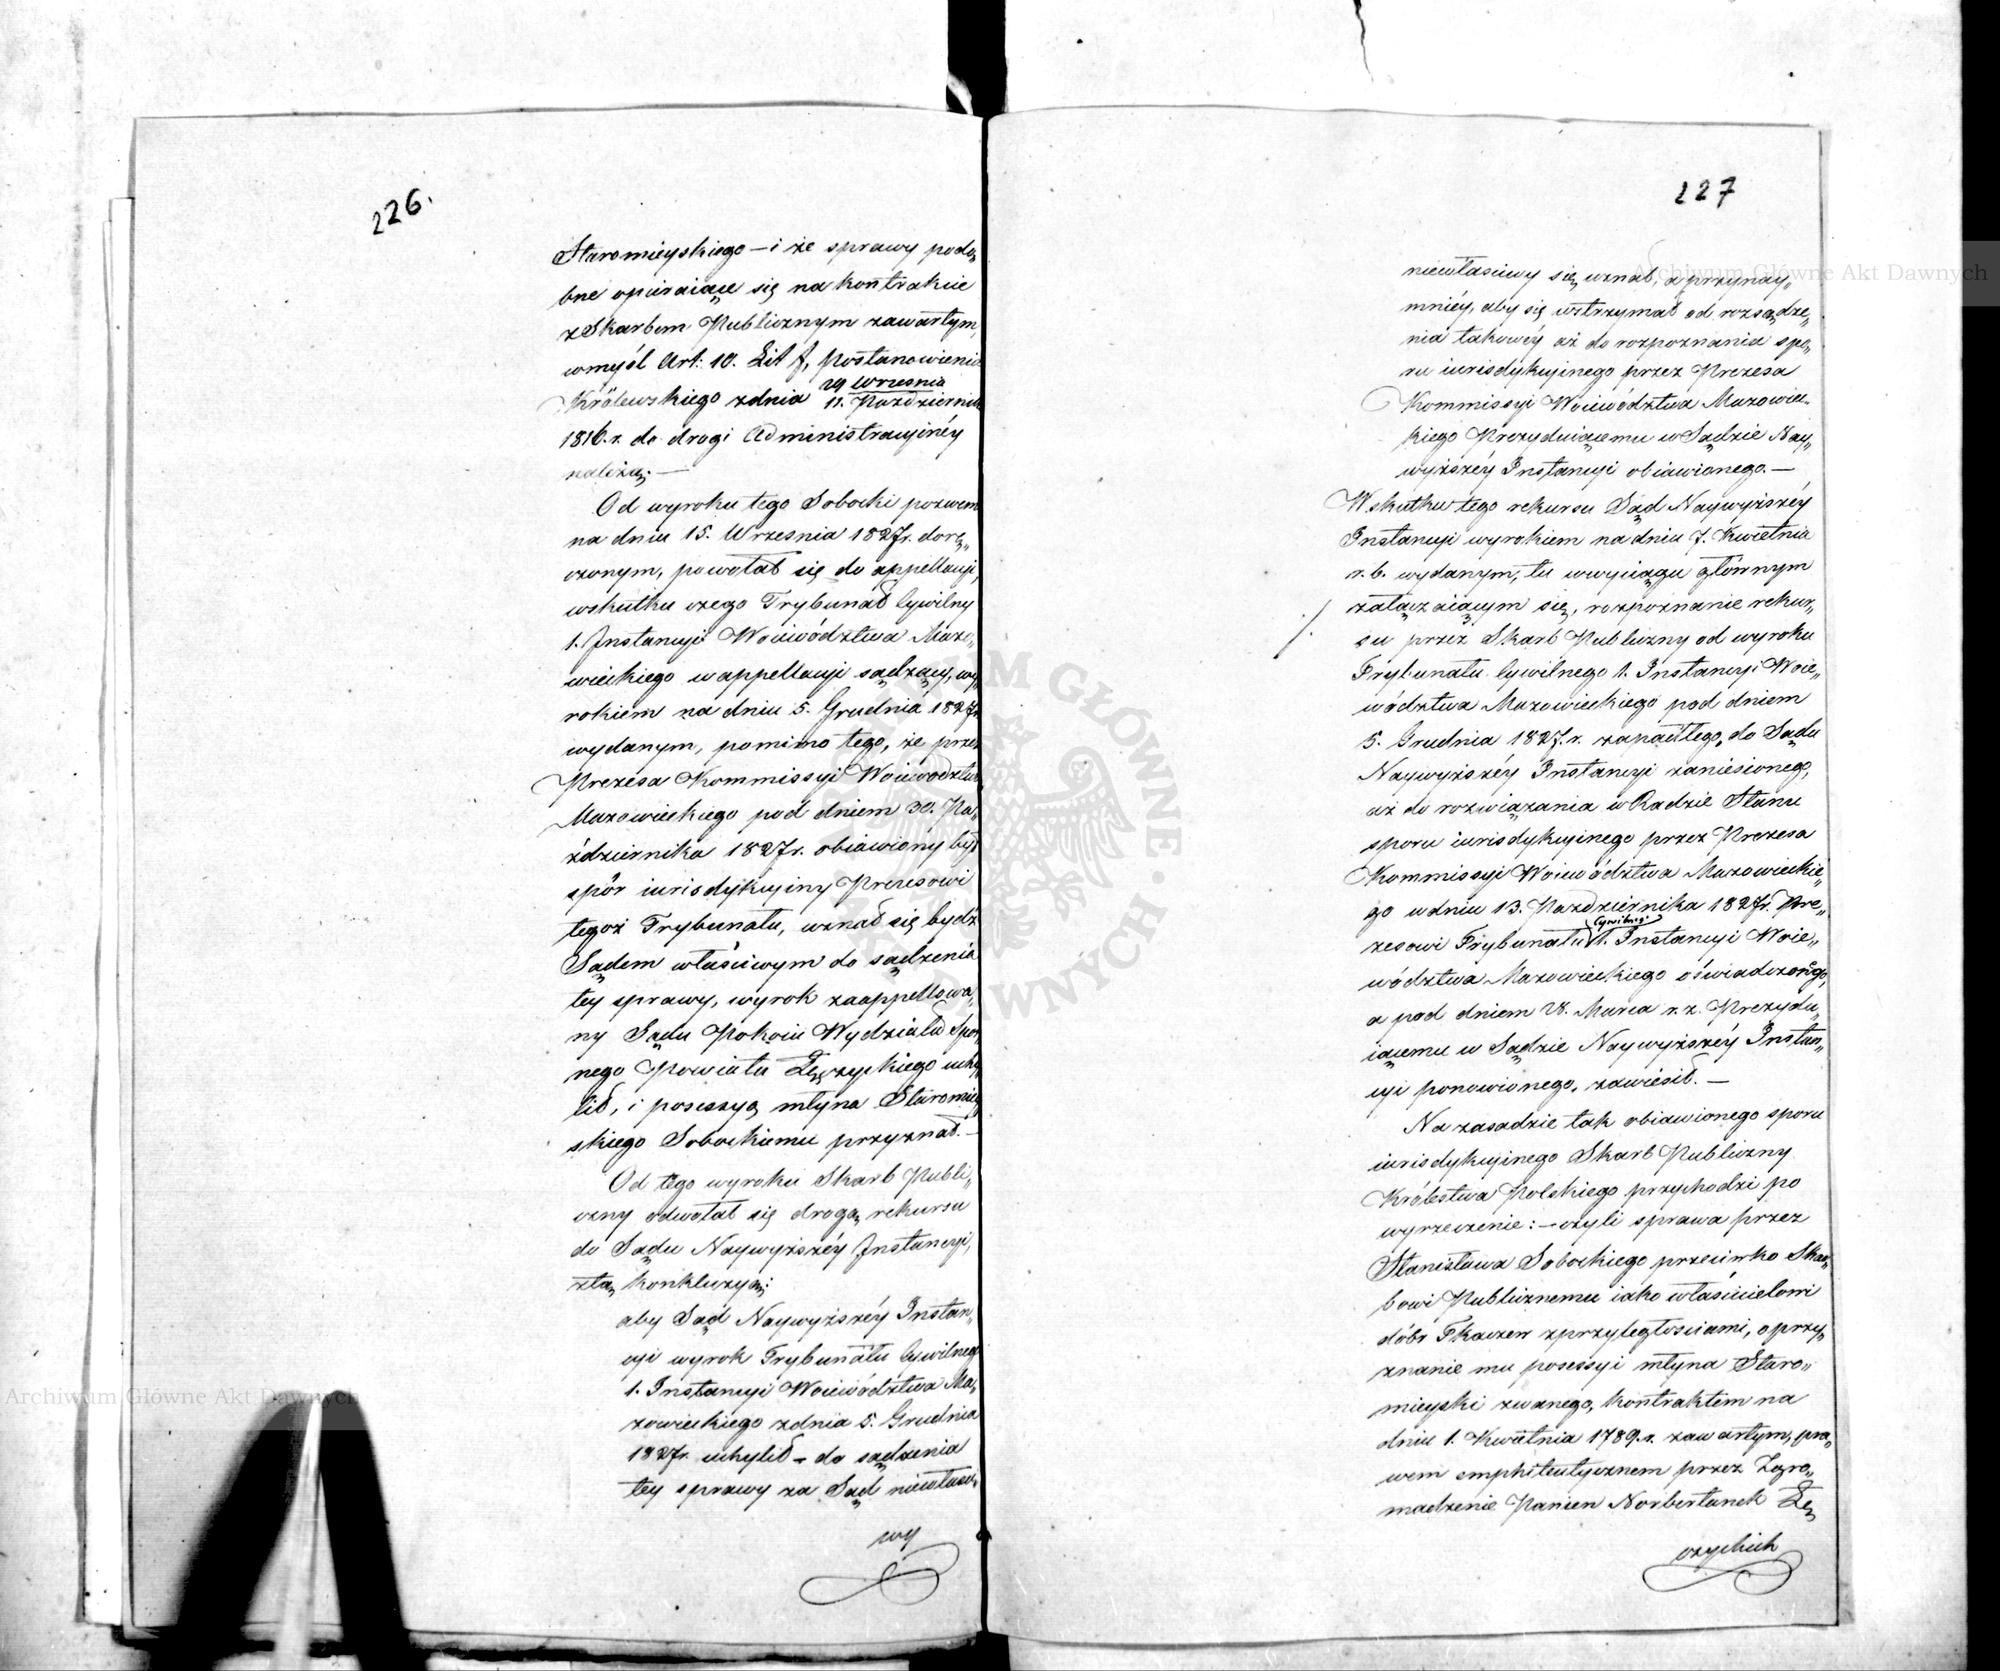 226.
Staromieyskiego – i że sprawy podo„
bne opieraiące się na kontrakcie
z Skarbem Publicznym zawartym,
w myśl Art: 10. Lit f, Postanowienia
29 Września
Królewskiego z dnia 11. Października
1816. r. do drogi Administracyinéy
należą. –
Od wyroku tego Sobocki pozwem
na dniu 15. Września 1827 r. dorę„
czonym, powołał się do appellacyi,
wskutku czego Trybunał Cywilny
1. Instancyi Woiewództwa Mazo„
wieckiego w appellacyi sądzący, wy„
rokiem na dniu 5. Grudnia 1827 r.
wydanym, pomimo tego, że przez
Prezesa Kommissyi Woiewództwa
Mazowieckiego pod dniem 30. Pa„
ździernika 1827 r. obiawiony był
spór iurisdykcyiny Prezesowi
tegoż Trybunału, uznał się bydź
Sądem właściwym do sądzenia
tey sprawy, wyrok zaappellowa„
ny Sądu Pokoiu Wydziału Spor„
nego Powiatu Łęczyckiego uchy„
lił, i posessyą młyna Staromiey„
skiego Sobockiemu przyznał. –
Od tego wyroku Skarb Publi„
czny odwołał się drogą rekursu
do Sądu Naywyższéy Instancyi,
z tą konkluzyą:
aby Sąd Naywyższéy Instan„
cyi wyrok Trybunału Cywilnego
1. Instancyi Woiewództwa Ma„
zowieckiego z dnia 5. Grudnia
1827 r. uchylił – do sądzenia
tey sprawy za Sąd niewłaści„
wy
227
niewłaściwy się uznał, a przynay„
mniéy, aby się wstrzymał od rozsądze„
nia takowéy aż do rozpoznania spo„
ru iurisdykcyinego przez Prezesa
Kommissyi Woiewództwa Mazowiec„
kiego Prezyduiącemu w Sądzie Nay„
wyższéy Instancyi obiawionego. –
W skutku tego rekursu Sąd Naywyższéy
Instancyi wyrokiem na dniu 7. Kwietnia
r. b. wydanym, tu w wyciągu głównym
załączaiącym się, rozpoznanie rekur„
su przez Skarb Publiczny od wyroku
Trybunału Cywilnego 1. Instancyi Woie„
wództwa Mazowieckiego pod dniem
5. Grudnia 1827. r. zapadłego, do Sądu
Naywyższéy Instancyi zaniesionego,
aż do rozwiązania w Radzie Stanu
sporu iurisdykcyinego przez Prezesa
Kommissyi Woiewództwa Mazowieckie„
go w dniu 13. Października 1827 r. Pre„
Cywilnego
zesowi Trybunału 1. Instancyi Woie„
wództwa Mazowieckiego oświadczonego,
a pod dniem 28. Marca r. z. Prezydu„
iącemu w Sądzie Naywyższéy Instan„
cyi ponowionego, zawiesił. –
Na zasadzie tak obiawionego sporu
iurisdykcyinego Skarb Publiczny
Królestwa Polskiego przychodzi po
wyrzeczenie: – czyli sprawa przez
Stanisława Sobockiego przeciwko Skar„
bowi Publicznemu iako właścicielowi
dóbr Tkaczew z przyległościami, o przy„
znanie mu posessyi młyna Staro„
mieyski zwanego, kontraktem na
dniu 1. Kwietnia 1789. r. zawartym, pra„
wem emphiteutycznem przez Zgro„
madzenie Panien Norbertanek Łę„
czyckich
Archiwum Główne Akt Dawnych
Archiwum Główne Akt Dawnych